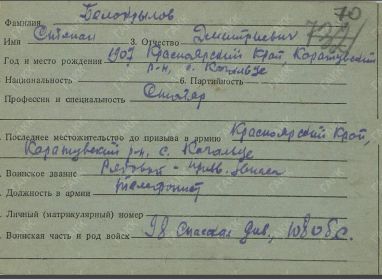 Фамилия Белокрылов 70
Имя Степан 3. Отчество Дмитриевич
Год и место рождения 1907 Красноярский Край, Каратузский
р-н, с.
Национальность 6. Партийность
Профессия и специальность Столяр
Последнее местожительство до призыва в армию Красноярский Край,
Каратузский р-н, с.
Воинское звание Рядовой -
Должность в армии телефонист
Личный (матрикулярный) номер
Воинская часть и род войск 98 див.,